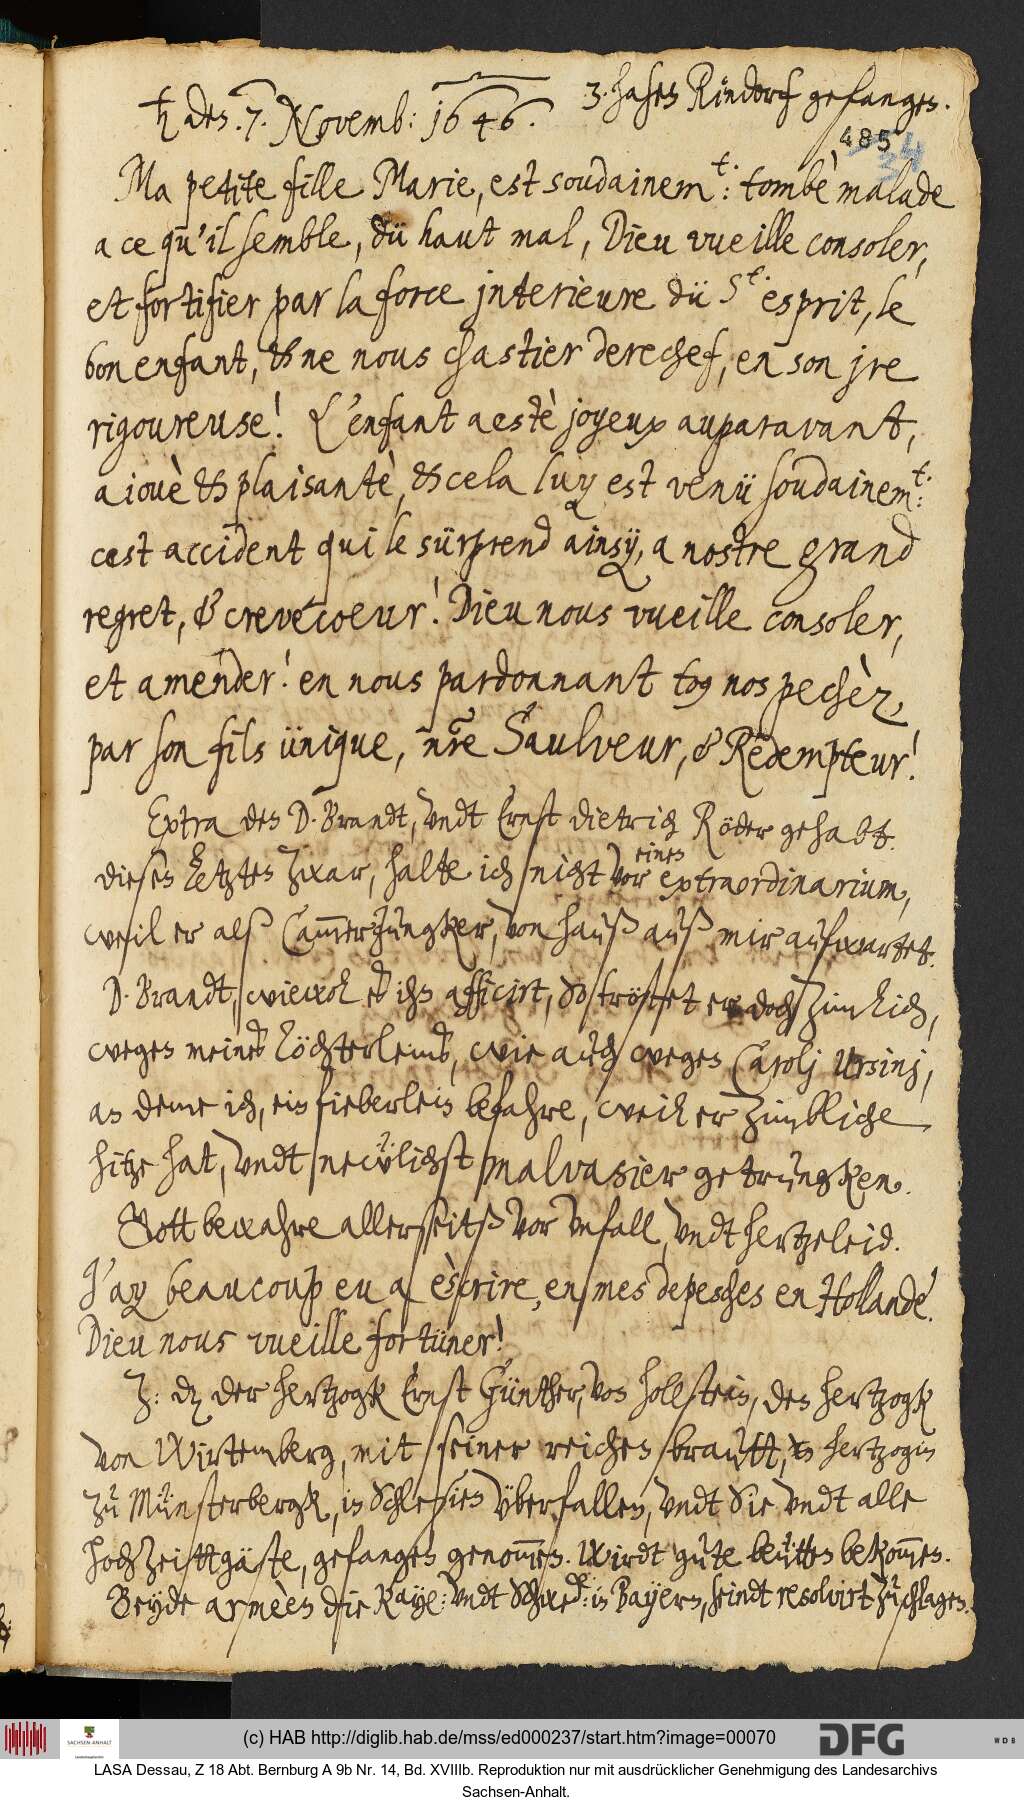 ♄ den .7. Novemb: 1646. 3. hasen Rindorf gefangen.
485
34
Ma petite fille Marie, est soudainem.t: tombè malade
a ce qu'il semble, dü haut mal, Dieu vueille consoler,
et fortifier par la force jnterieure dü St. esprit, le
bon enfant, & ne nous chastier derechef, en son jre
rigoureuse! L'enfant a estè joyeux auparavant,
a iouè & plaisantè, & cela luy est venü soudainem.t:
cest accident qui le sürprend ainsÿ, a nostre grand
regret, & crevecoeur! Dieu nous vueille consoler,
et amender! en nous pardonnant to9 nos pechèz,
par son fils ünique, nr̃e Saulveur, & Redempteur!
Extra den D. Brandt, vndt Ernst Dietrich Röder gehabt.
diesen letzten zwar, halte ich nicht vor einen extraordinarium,
weil er alß Cammerjungker, von hauß auß mir aufwartet.
D. Brandt, wiewol es ihn afficirt, So tröstet er doch zimlich,
wegen meines töchterleins, wie auch wegen Carolj Ursinj,
an deme ich, ein fieberlein befahre, weil er zimbliche
hitze hat, vndt newlichst malvasier getruncken.
Gott bewahre allerseits vor vnfall, vndt hertzeleid.
J'ay beaucoup eu a èscrire, en mes depesches en Hollande.
Dieu nous vueille fortüner!
Z: dz der hertzogk Ernst Günther, von hollstein, den hertzogk
von Wirtemberg, mit seiner reichen brautt, hertzogin
zu Münsterbergk, in Schlesien vberfallen, vndt Sie vndt alle
hochzeittgäste, gefangen genommen. Wirdt gute beutten bekommen.
Beyde armèen die Kayl: vndt Schwed: in Bayern, seindt resolvirt zu schlagen.
(c) HAB http://diglib.hab.de/mss/ed000237/start.htm?image=00070
SACHSEN-ANHALT
DFG
WDB
LASA Dessau, Z 18 Abt. Bernburg A 9b Nr. 14, Bd. XVIIIb. Reproduktion nur mit ausdrücklicher Genehmigung des Landesarchivs
Sachsen-Anhalt.